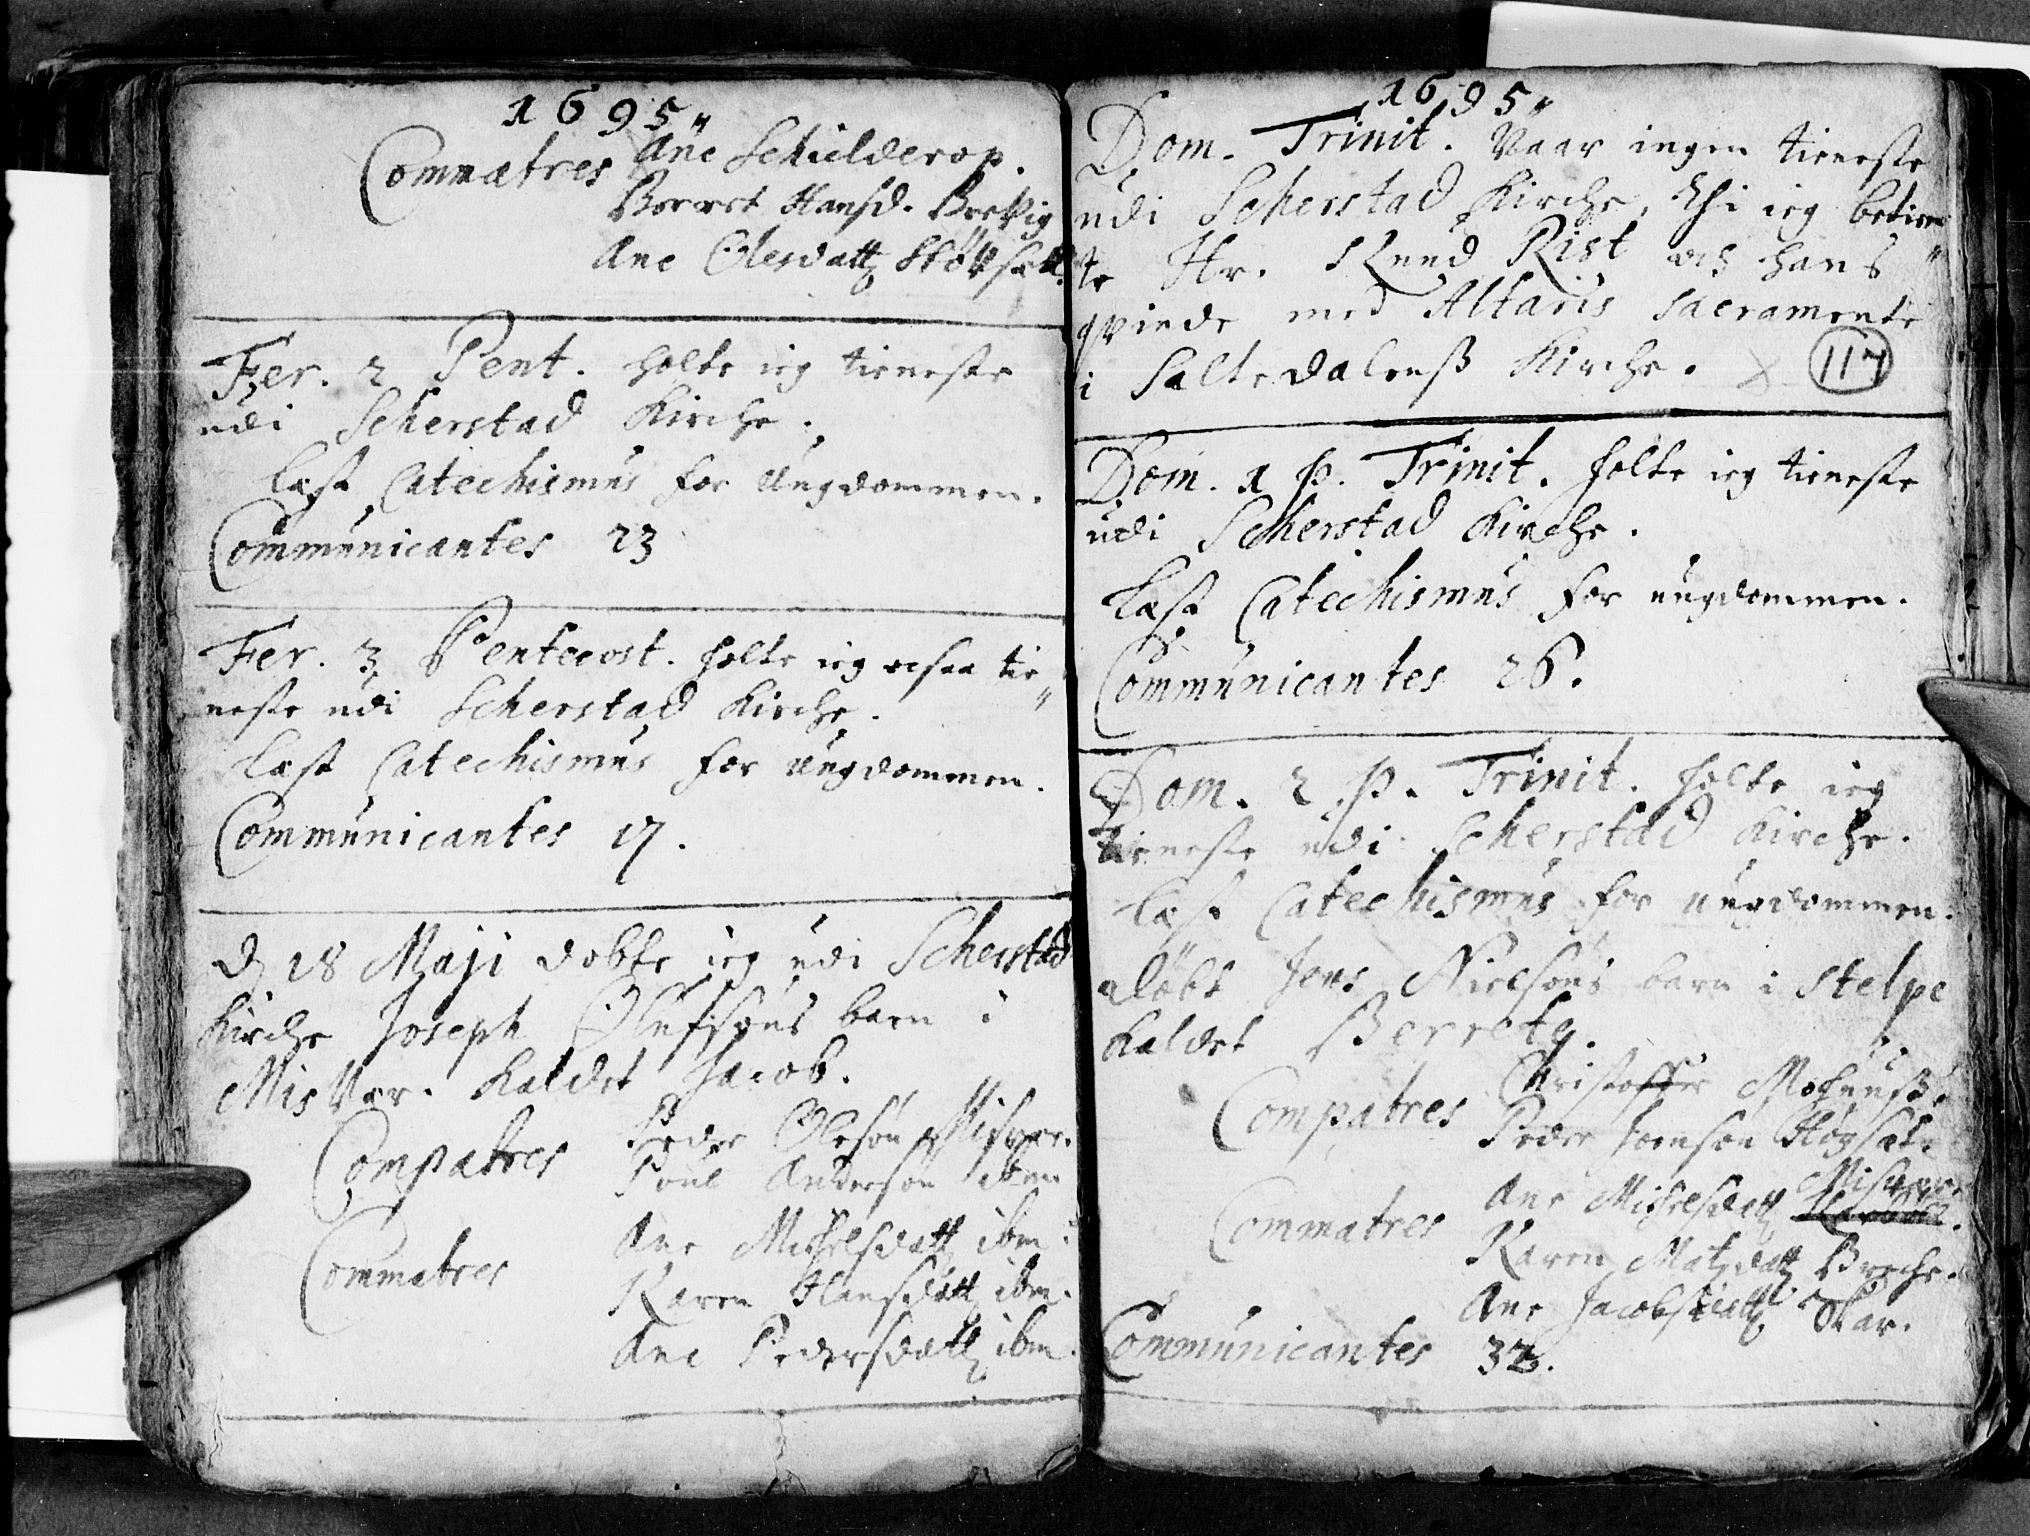 1695„
Commatres Ane Schielderop.
Berret Hansd. Brekvig
Ane Olesdatt
Fer. 2 Pent. holte ieg tieneste
udi Scherstad Kirche.
læst Catechismus for Ungdommen.
Communicantes 23
Fer. 3 Pentecost. holte ieg ocsaa tie„
neste udi Scherstad Kirche.
læst Catechismus for Ungdommen.
Communicantes 17.
D 18 Maji døbte ieg udi Scherstad
Kirche Joseph Olufsøns barn i
Misvær. kaldet Jacob.
Compatres Peder Olesøn Misvær.
Poul Andersøn ibm
Commatres Ane Michelsdatt ibm.
Karen Hansdatt ibm.
Ane Pedersdatt ibm.
1695„
Dom. Trinit. Vaar ingen tieneste
udi Scherstad Kirche, thi ieg betien„
te Hr. Knud Rist och hans
qvinde med Altaris Sacramente
i Saltedalens Kirche.
117
Dom. 1 p. Trinit. holte ieg tieneste
udi Scherstad Kirche.
læst Catechismus for ungdommen.
Communicantes 26.
Dom. 2 p. Trinit. holte ieg
tieneste udi Scherstad Kirche.
læst Catechismus for ungdommen.
døbt Jens Nielsøns barn i Stelpe
kaldet Berrete.
Compatres Christoffer
Peder Joensøn
Commatres Ane Michelsdatt Misvær.
Karen Matzdatt
Ane Jacobsdatt Skar.
Communicantes 33.